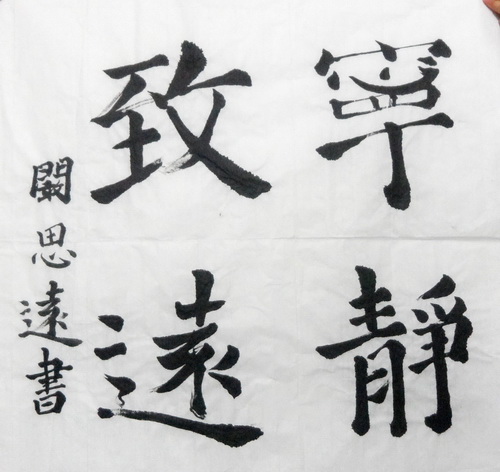 寧靜
致遠
闞思遠書